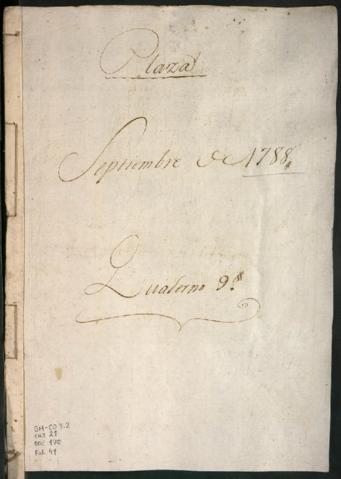 Plaza
Septiembre de 1788,,
Quaderno 9.º
GM-CO 3.2
CAJ 21
DOC 190
Fol. 41